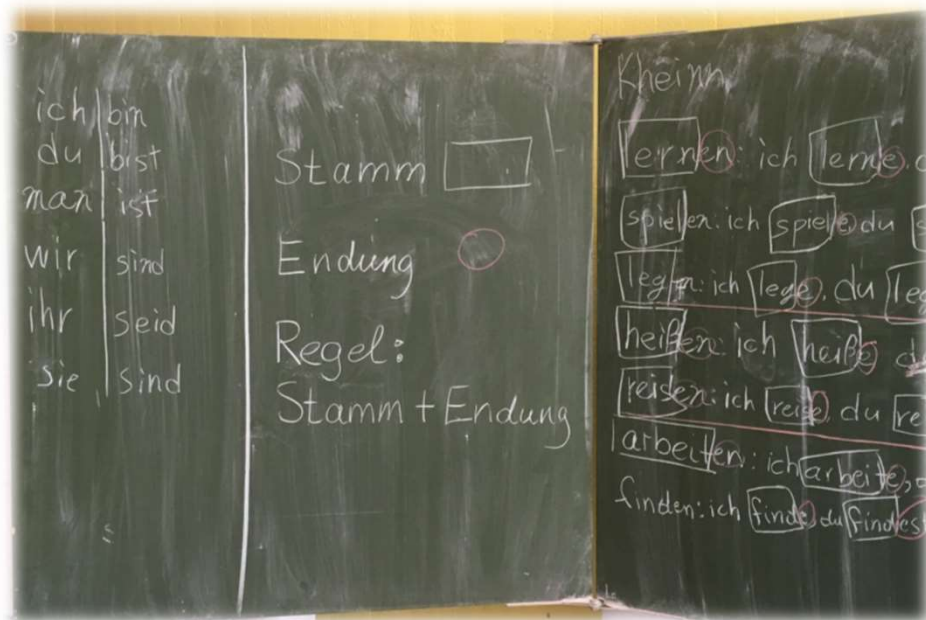 ich bin
du bist
man ist
wir sind
ihr seid
sie sind
Stamm
Endung
Regel:
Stamm + Endung
lernen: ich lerne,
spielen: ich spiele, du
legen: ich lege, du leg
heißen: ich heiße
reisen: ich reise, du re
arbeiten: ich arbeite,
finden: ich finde, du findes